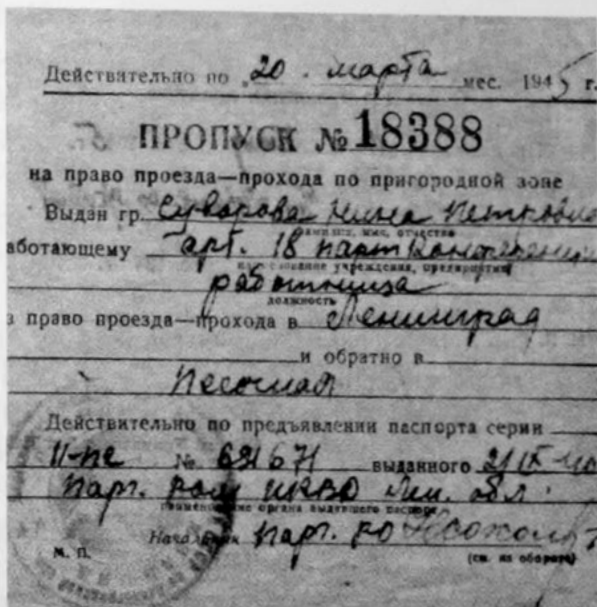 Действительно по „20 . марта мес. 1945 г.
ПРОПУСК № 18388
на право проезда—прохода по пригородной зоне
Выдан гр. Суворова Нина
фамилия, имя, отчество
аботающему Арт. 18 парт Конференции
наименование учреждения, предприятия
работница
должность
а право проезда—прохода в Ленинград
и обратно в
Песочная
Действительно по предъявлении паспорта серии
II-пе № 691671 выданного 21 IX-40
Парг. РОМ НКВД Лен. обл.
наименование органа выдавшего паспорт
Начальник Парг. РО
м. п.
(см. на обороте)